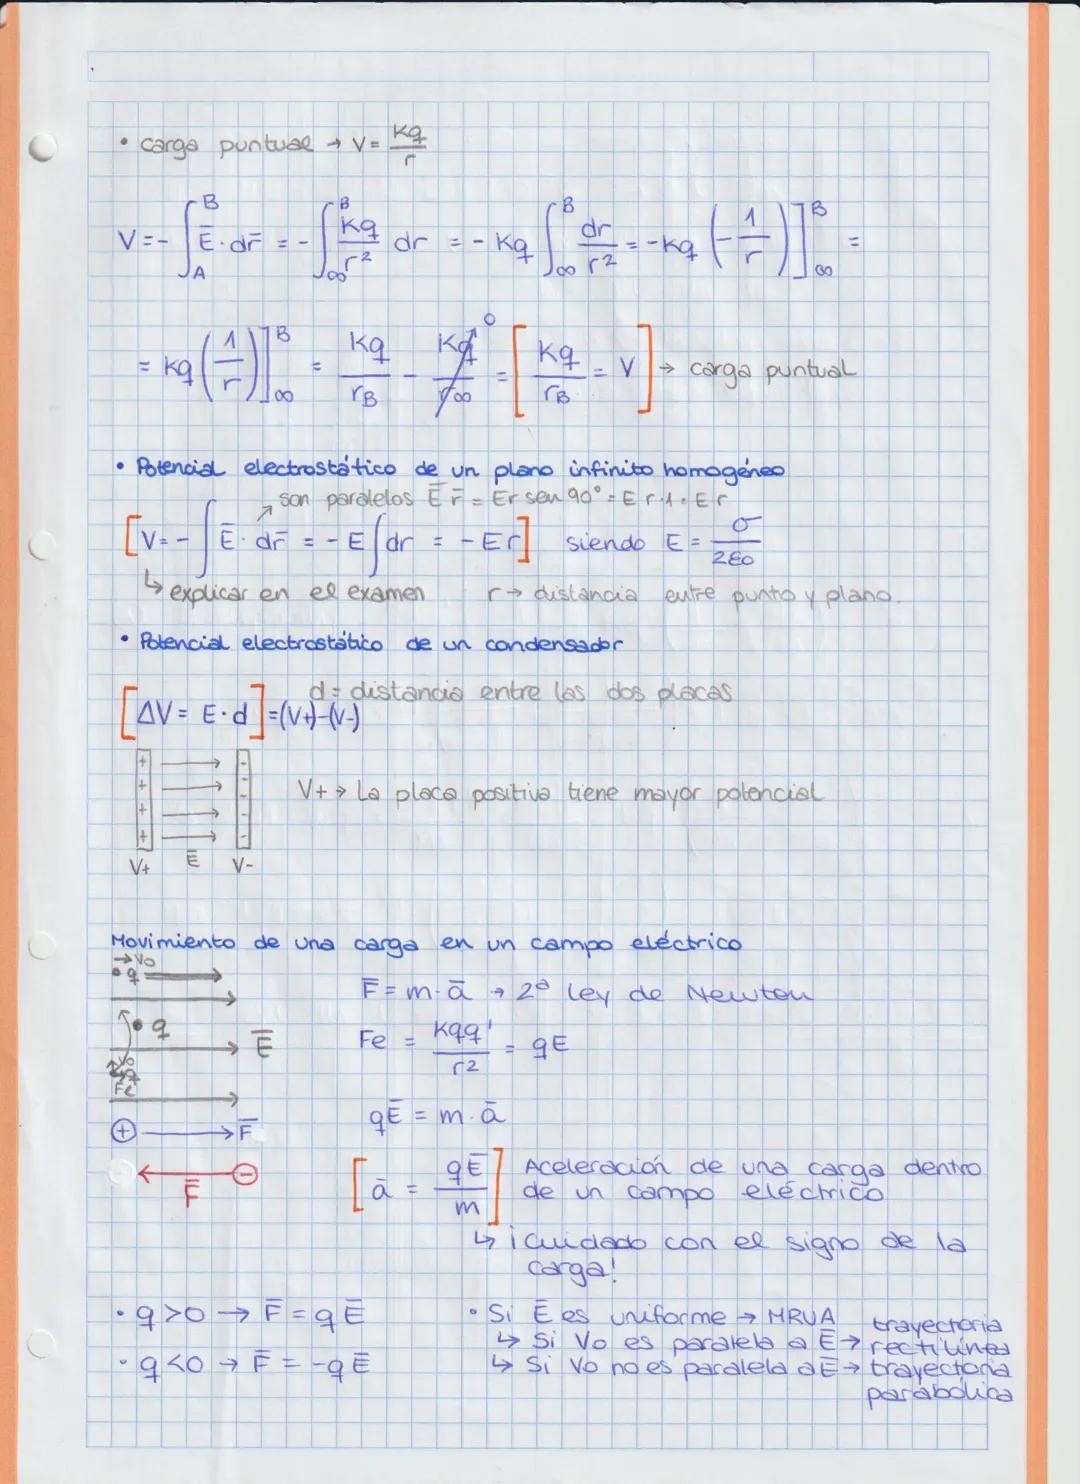 • carga puntual → V = Kq/r
V = - ∫_A^B Ē · dr̄ = - ∫_∞^B Kq/r² dr = - Kq ∫_∞^B dr/r² = - Kq (- 1/r)]_∞^B =
= Kq (1/r)]_∞^B = Kq/rB - Kq/r∞ 0 = [Kq/rB = V] → carga puntual
• Potencial electrostático de un plano infinito homogéneo
↗ son paralelos Ē r̄ = Er sen 90° = E r · 1 = Er
[V = - ∫ Ē · dr̄ = - E ∫ dr = - Er] siendo E = σ/2ε0
↳ explicar en el examen r → distancia entre punto y plano.
• Potencial electrostático de un condensador
d = distancia entre las dos placas
[ΔV = E · d] = (V+)-(V-)
+ + + + - - - - -
V+ → La placa positiva tiene mayor potencial
V+ Ē V-
Movimiento de una carga en un campo eléctrico
→ Vo
• q
F̄ = m · ā → 2ª Ley de Newton
• q
Ē
Fe = Kqq'/r² = qE
Vo
Fe
qĒ = m · ā
+ → F̄
← -
F̄
[ā = qĒ/m] Aceleración de una carga dentro
de un campo eléctrico
↳ ¡cuidado con el signo de la
carga!
• q>0 → F̄ = qĒ
• q<0 → F̄ = -qĒ
• Si Ē es uniforme → MRUA
↳ Si Vo es paralela a Ē → trayectoria rectilínea
↳ Si Vo no es paralela a Ē → trayectoria
parabólica